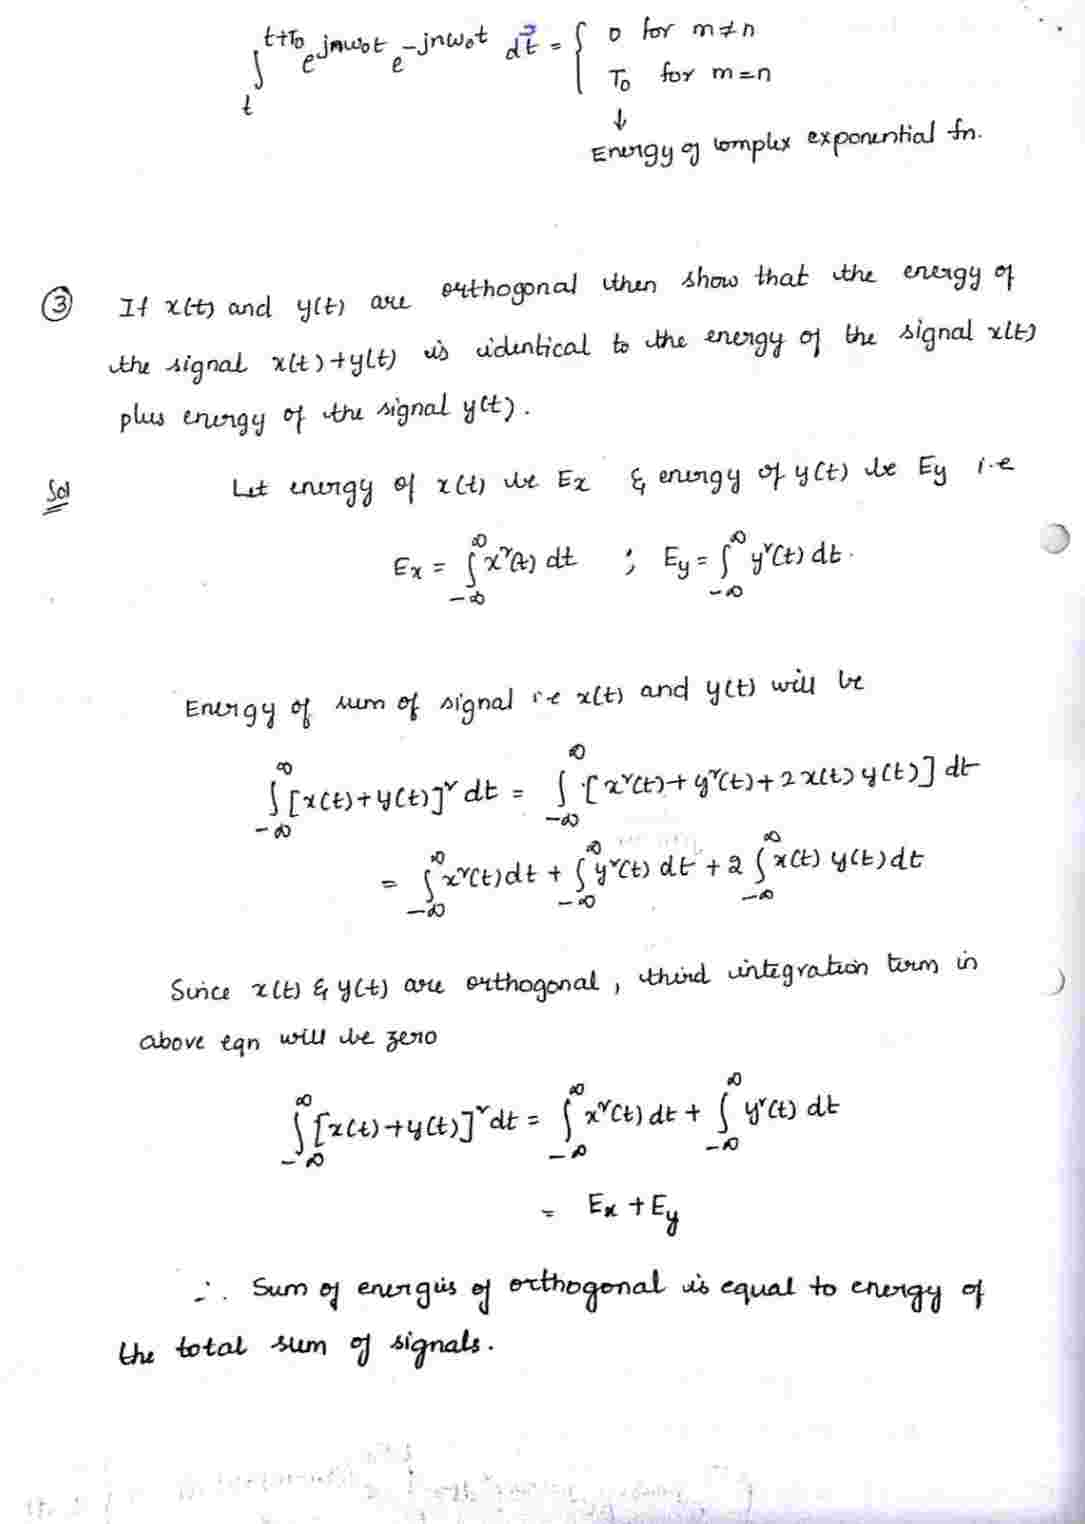 ∫_t^{t+T₀} e^{jmω₀t} e^{-jnω₀t} dt = { 0 for m≠n
T₀ for m=n
↓
Energy of complex exponential fn.
③ If x(t) and y(t) are orthogonal then show that the energy of
the signal x(t)+y(t) is identical to the energy of the signal x(t)
plus energy of the signal y(t).
Sol Let energy of x(t) be Ex & energy of y(t) be Ey i.e
Ex = ∫_{-∞}^{∞} x²(t) dt ; Ey = ∫_{-∞}^{∞} y²(t) dt.
Energy of sum of signal i.e x(t) and y(t) will be
∫_{-∞}^{∞} [x(t)+y(t)]² dt = ∫_{-∞}^{∞} [x²(t)+y²(t)+2x(t)y(t)] dt
= ∫_{-∞}^{∞} x²(t)dt + ∫_{-∞}^{∞} y²(t) dt + 2 ∫_{-∞}^{∞} x(t) y(t)dt
Since x(t) & y(t) are orthogonal, third integration term in
above eqn will be zero
∫_{-∞}^{∞} [x(t)+y(t)]² dt = ∫_{-∞}^{∞} x²(t) dt + ∫_{-∞}^{∞} y²(t) dt
= Ex + Ey
∴ Sum of energies of orthogonal is equal to energy of
the total sum of signals.